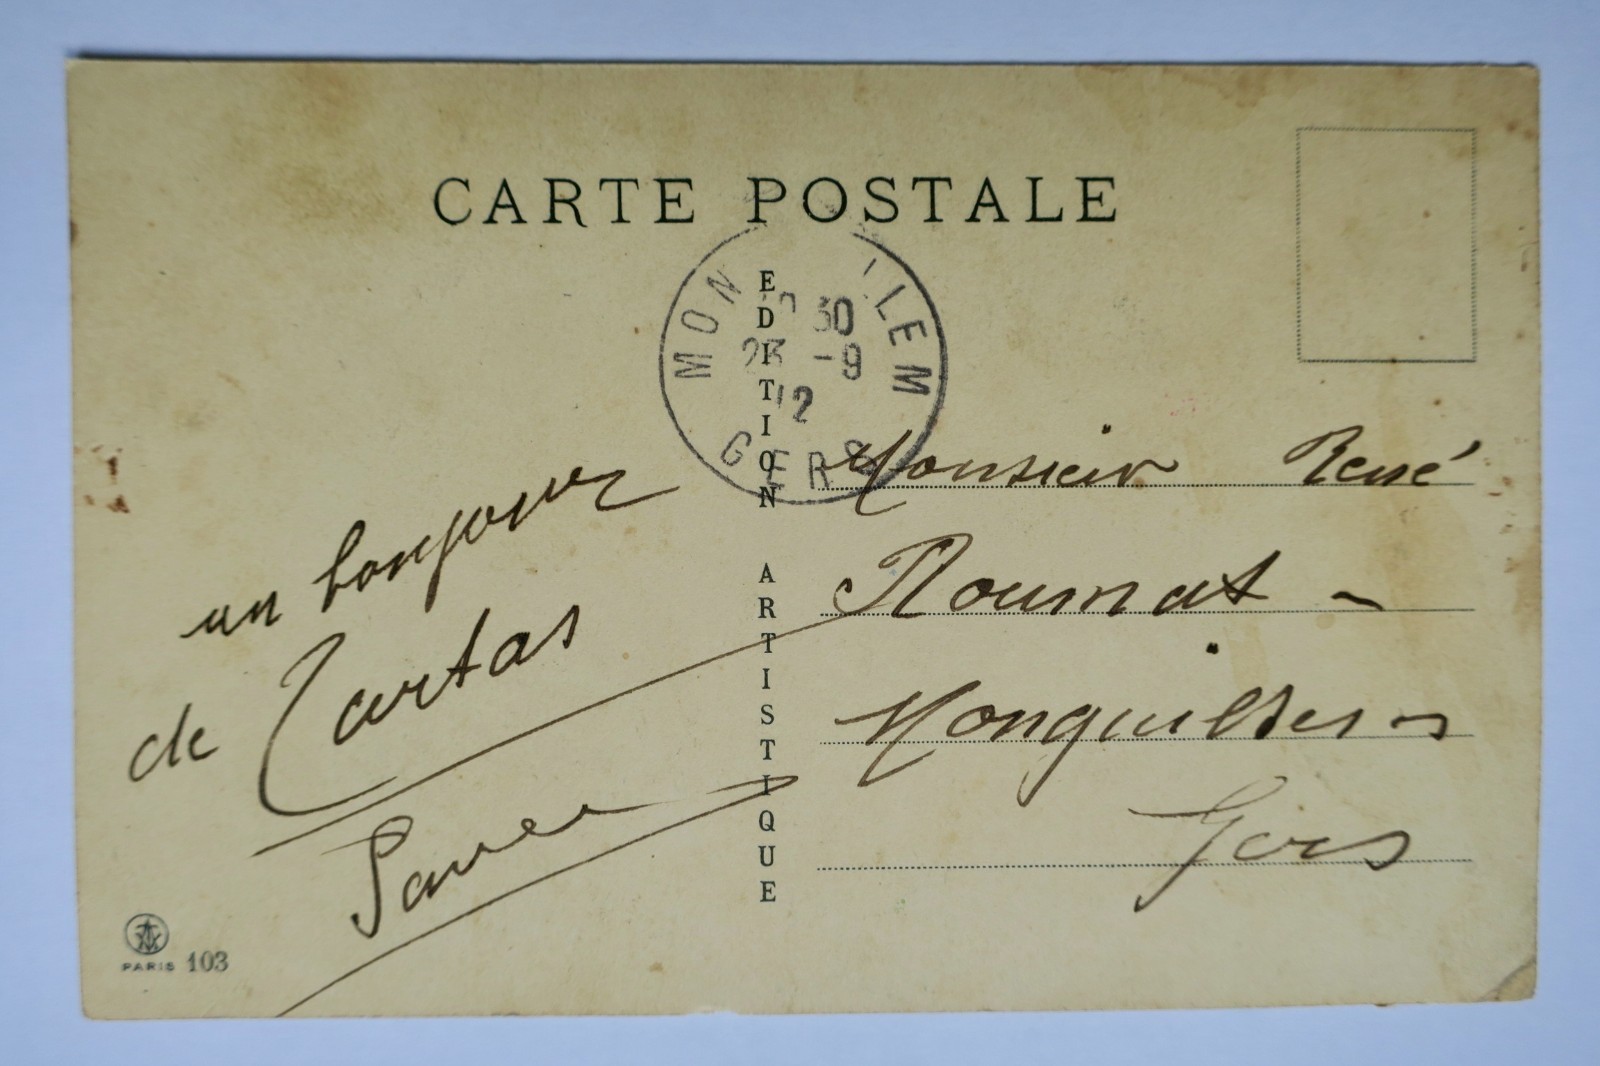 CARTE POSTALE
EDITION ARTISTIQUE
MON ILEM
30
23 -9
12
GERS
un bonjour
de Tartas
Monsieur René
Roumat -
Monguilhem
Gers
PARIS 103